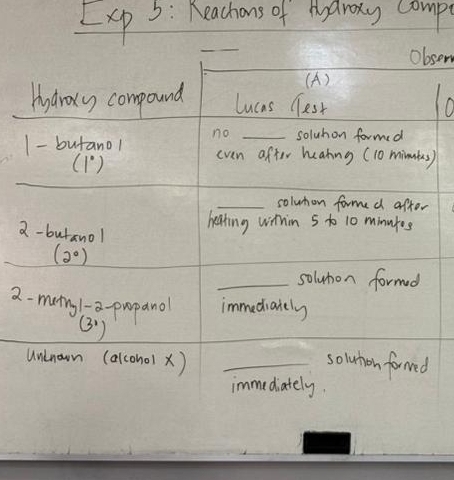 Exp 5: Reactions of Hydroxy Compo
Obser
(A)
Hydroxy compound
Lucas Test
1 - butanol
(1°)
no ______ solution formed
even after heating (10 minutes)
2 - butanol
(2°)
______ solution formed after
heating within 5 to 10 minutes
2 - methyl-2-propanol
(3°)
______ solution formed
immediately
Unknown (alcohol X)
______ solution formed
immediately.